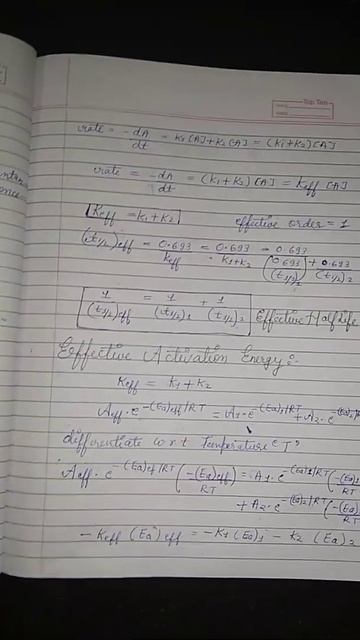 Top Ten
rate = -dA/dt = k1[A]+k2[A] = (k1+k2)[A]
rate = -dA/dt = (k1+k2)[A] = keff[A]
keff = k1+k2 effective order = 1
(t1/2)eff = 0.693/keff = 0.693/k1+k2 = 0.693/(0.693/(t1/2)1 + 0.693/(t1/2)2)
1/(t1/2)eff = 1/(t1/2)1 + 1/(t1/2)2 Effective Half life
Effective Activation Energy:-
Keff = k1 + k2
Aeff.e^-(Ea)eff/RT = A1.e^-(Ea)1/RT + A2.e^-(Ea)2
differentiate w.r.t Temperature 'T'
Aeff.e^-(Ea)eff/RT (-(Ea)eff/RT) = A1.e^-(Ea)1/RT (-(Ea)1/RT
+ A2.e^-(Ea)2/RT (-(Ea)/RT
- Keff (Ea)eff = -K1 (Ea)1 - K2 (Ea)2